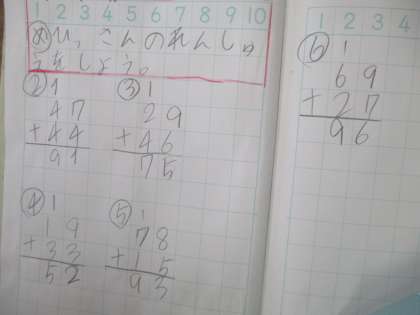 1 2 3 4 5 6 7 8 9 10
めひっさんのれんしゅ
うをしよう。
② 1
47
+44
91
③ 1
29
+46
75
④ 1
19
+33
52
⑤ 1
78
+15
93
1 2 3 4
⑥ 1
69
+27
96